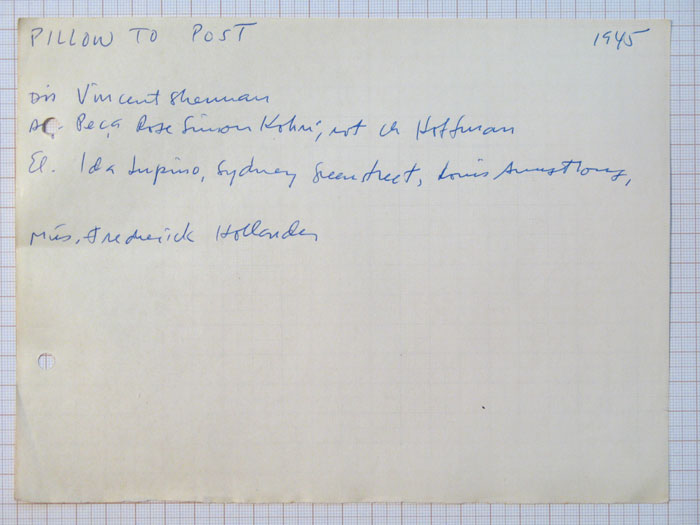 PILLOW TO POST 1945
Dir Vincent Sherman
AC. Peça Rose Simon Kohn; rot Ch Hoffman
El. Ida Lupino, Sydney Greenstreet, Louis Armstrong,
Mús. Frederick Hollander